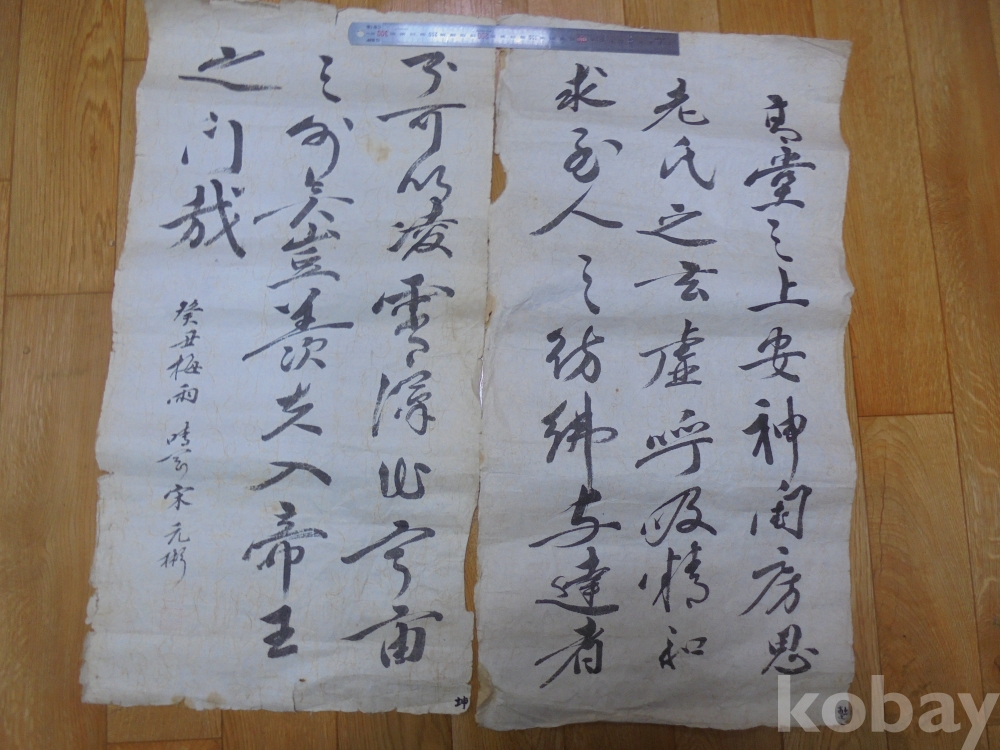 高堂之上安神閨房思
老氏之玄虛呼吸精和
求至人之彷彿与達者
可以凌霄漢出宇宙
之外矣豈羨夫入帝王
之門哉
癸丑梅雨 宋元彬
坤
kobay